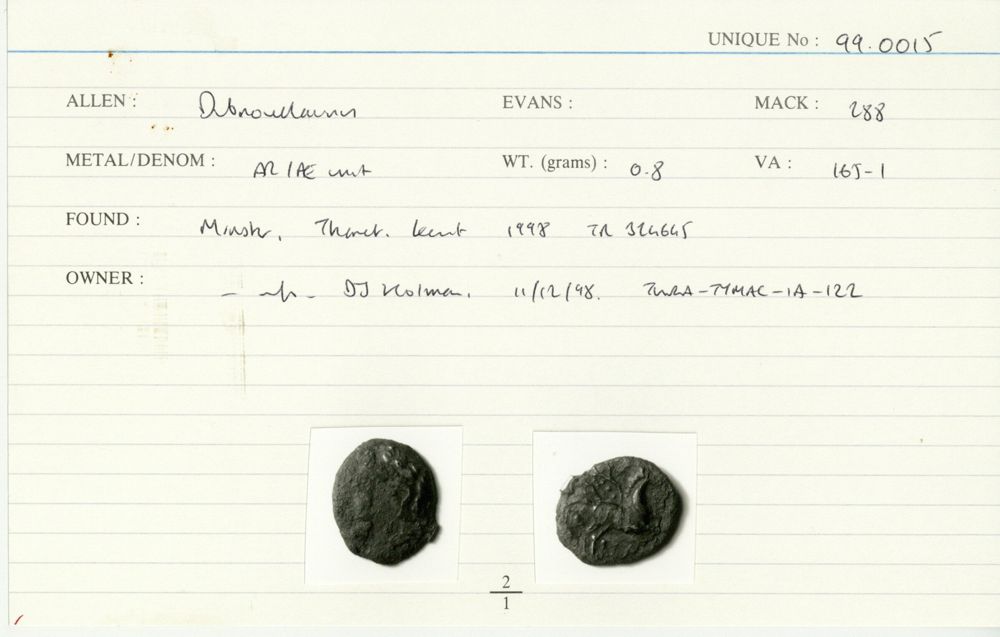 UNIQUE No : 99.0015
ALLEN : Dubnovellaunus EVANS : MACK : 288
METAL/DENOM : AR/AE unit WT. (grams) : 0.8 VA : 165-1
FOUND : Minster, Thanet. Kent 1998 TR 324645
OWNER : DJ Holman, 11/12/98. -IA-122
2
1